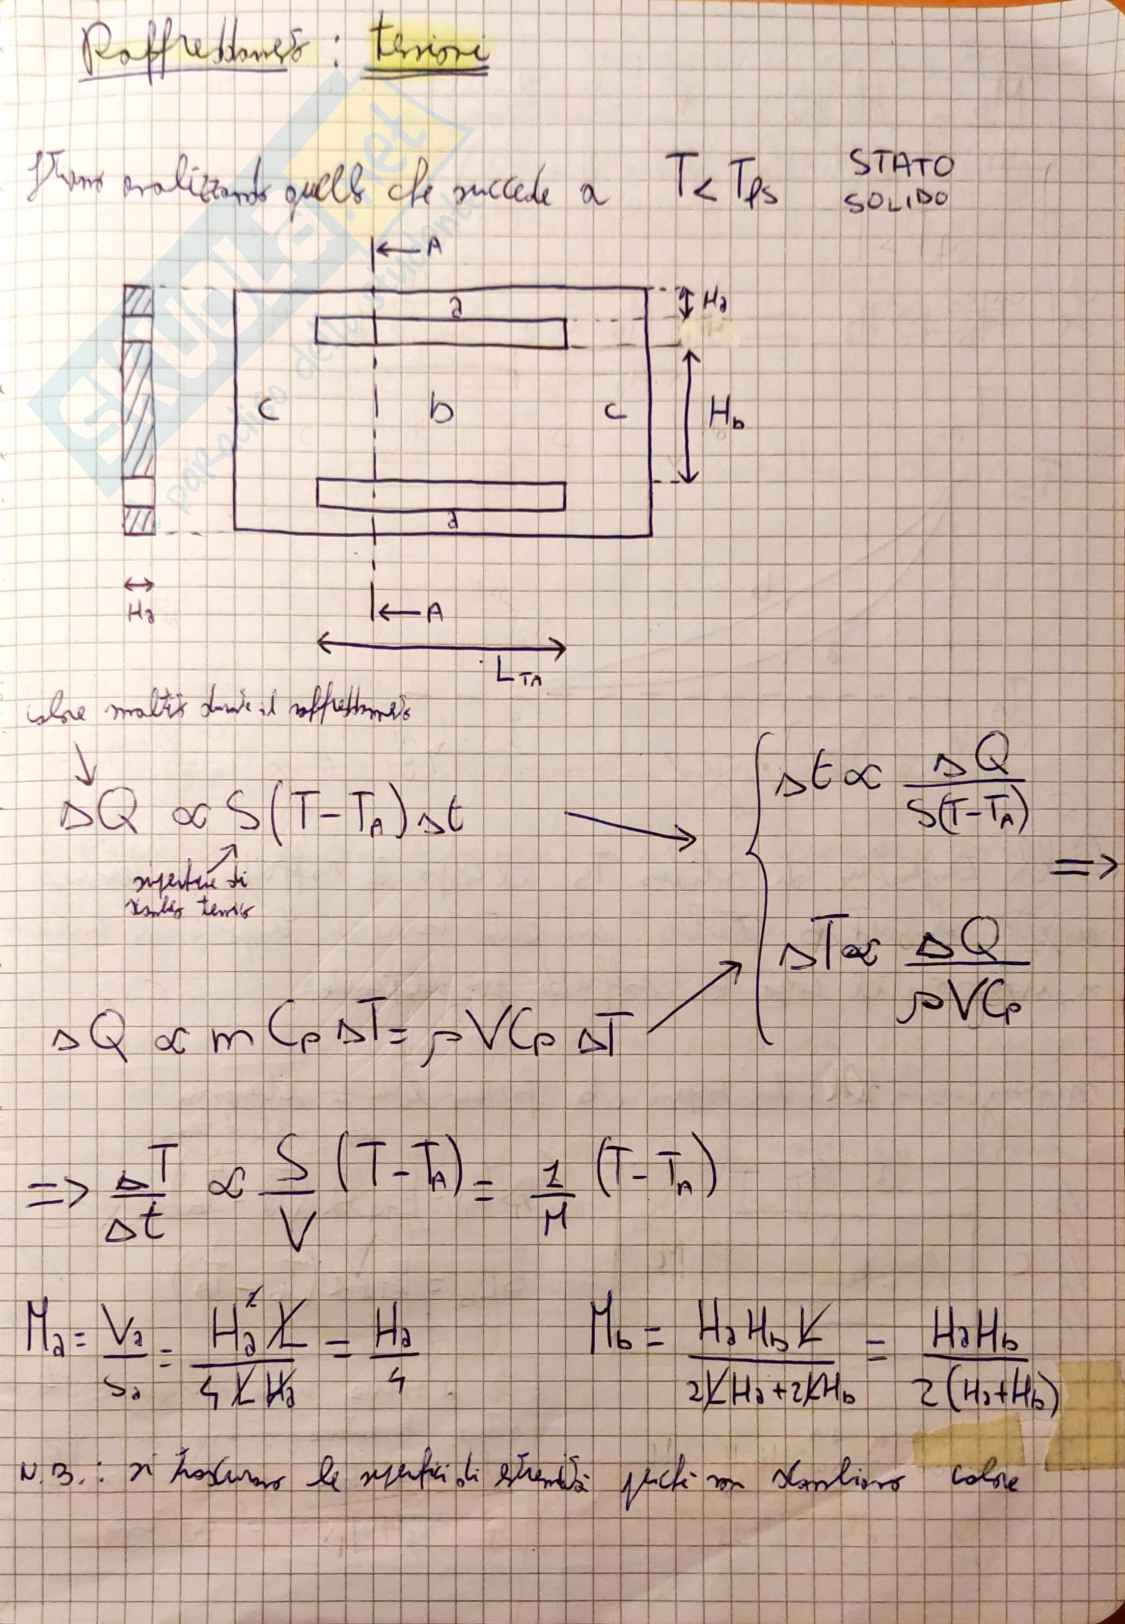 Raffreddamento : tensioni
Stiamo analizzando quello che succede a T < Tfs STATO SOLIDO
← A
a
Ha
c b c
Hb
a
Ha
← A
L TA
calore smaltito durante il raffreddamento
ΔQ ∝ S(T-TA)Δt
superficie di
scambio termico
Δt ∝ ΔQ / S(T-TA)
⇒
ΔT ∝ ΔQ / ρVCp
ΔQ ∝ m Cp ΔT = ρVCp ΔT
⇒ ΔT/Δt ∝ S/V (T-TA) = 1/M (T-TA)
Ma = Va/Sa = Ha² L / 4 L Ha = Ha/4
Mb = Ha Hb L / 2LHa+2LHb = HaHb / 2(Ha+Hb)
N.B.: si trascurano le superfici di estremità perché non scambiano calore
SKUOLA.net
paradiso dello studente